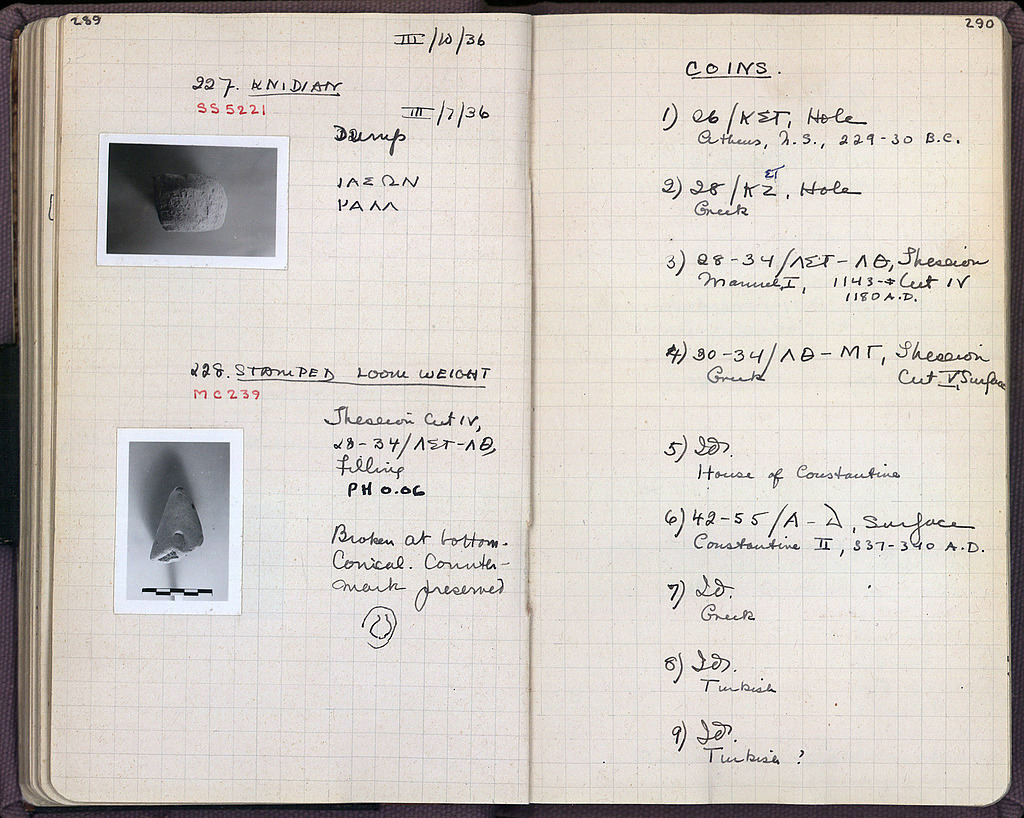 289
III/10/36
227. KNIDIAN
SS 5221
III/7/36
Dump
ΙΑΣΩΝ
ΚΑΛΛ
228. STAMPED LOOM WEIGHT
MC 239
Theseion Cut IV,
28-34/ΛΣΤ-ΛΘ,
Filling
PH 0.06
Broken at bottom.
Conical. Counter-
mark preserved
290
COINS.
1) 26/ΚΣΤ, Hole
Athens, N.S., 229-30 B.C.
2) 28/ΚΖ, Hole
ΣΤ
Greek
3) 28-34/ΛΣΤ-ΛΘ, Theseion
Manuel I, 1143- Cut IV
1180 A.D.
4) 30-34/ΛΘ-ΜΓ, Theseion
Greek Cut V, Surface
5) Id.
House of Constantine
6) 42-55/Α-Δ, Surface
Constantine II, 337-340 A.D.
7) Id.
Greek
8) Id.
Turkish
9) Id.
Turkish ?